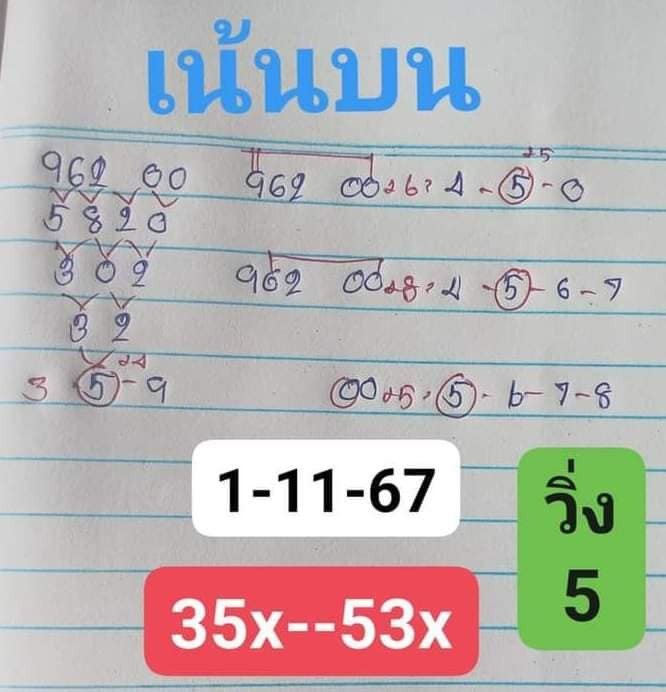 เน้นบน
962 00
5 8 2 0
3 0 2
3 2
3 5-9
962 00 4-5-0
962 00 4-5-6-7
00+5 5-6-7-8
1-11-67
วิ่ง
5
35x--53x